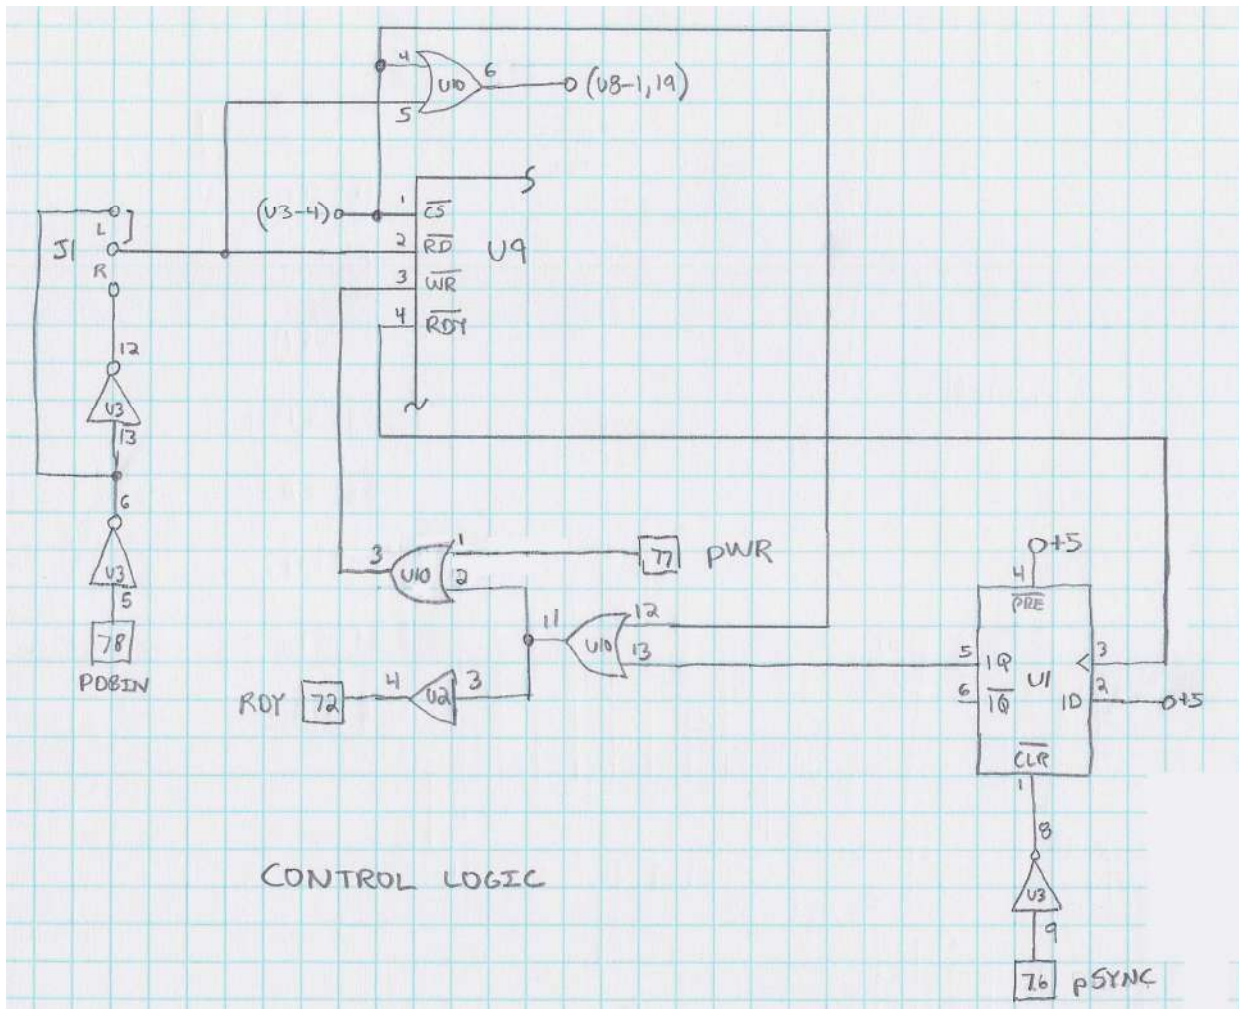 4
U10
6
(U8-1,19)
5
(U3-4)
1
CS
2
RD
3
WR
4
RDY
U9
J1
L
R
12
U3
13
6
U3
5
78
PDBIN
3
U10
1
2
77
pWR
11
U10
12
13
RDY
72
4
U2
3
+5
4
PRE
5
1Q
6
1Q
U1
3
2
1D
+5
CLR
1
8
U3
9
76
pSYNC
CONTROL LOGIC